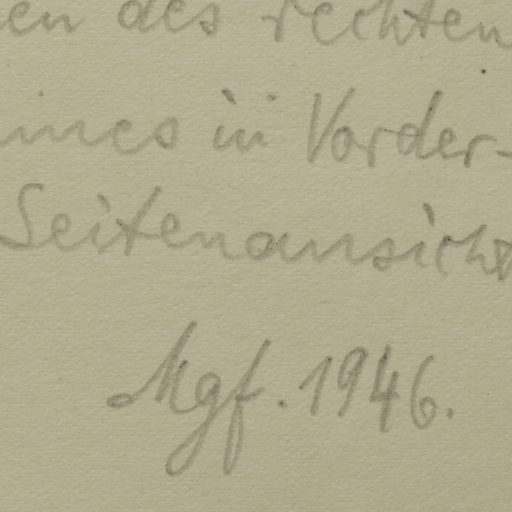 en des rechten
mes in Vorder-
Seitenansicht
Mgf. 1946.